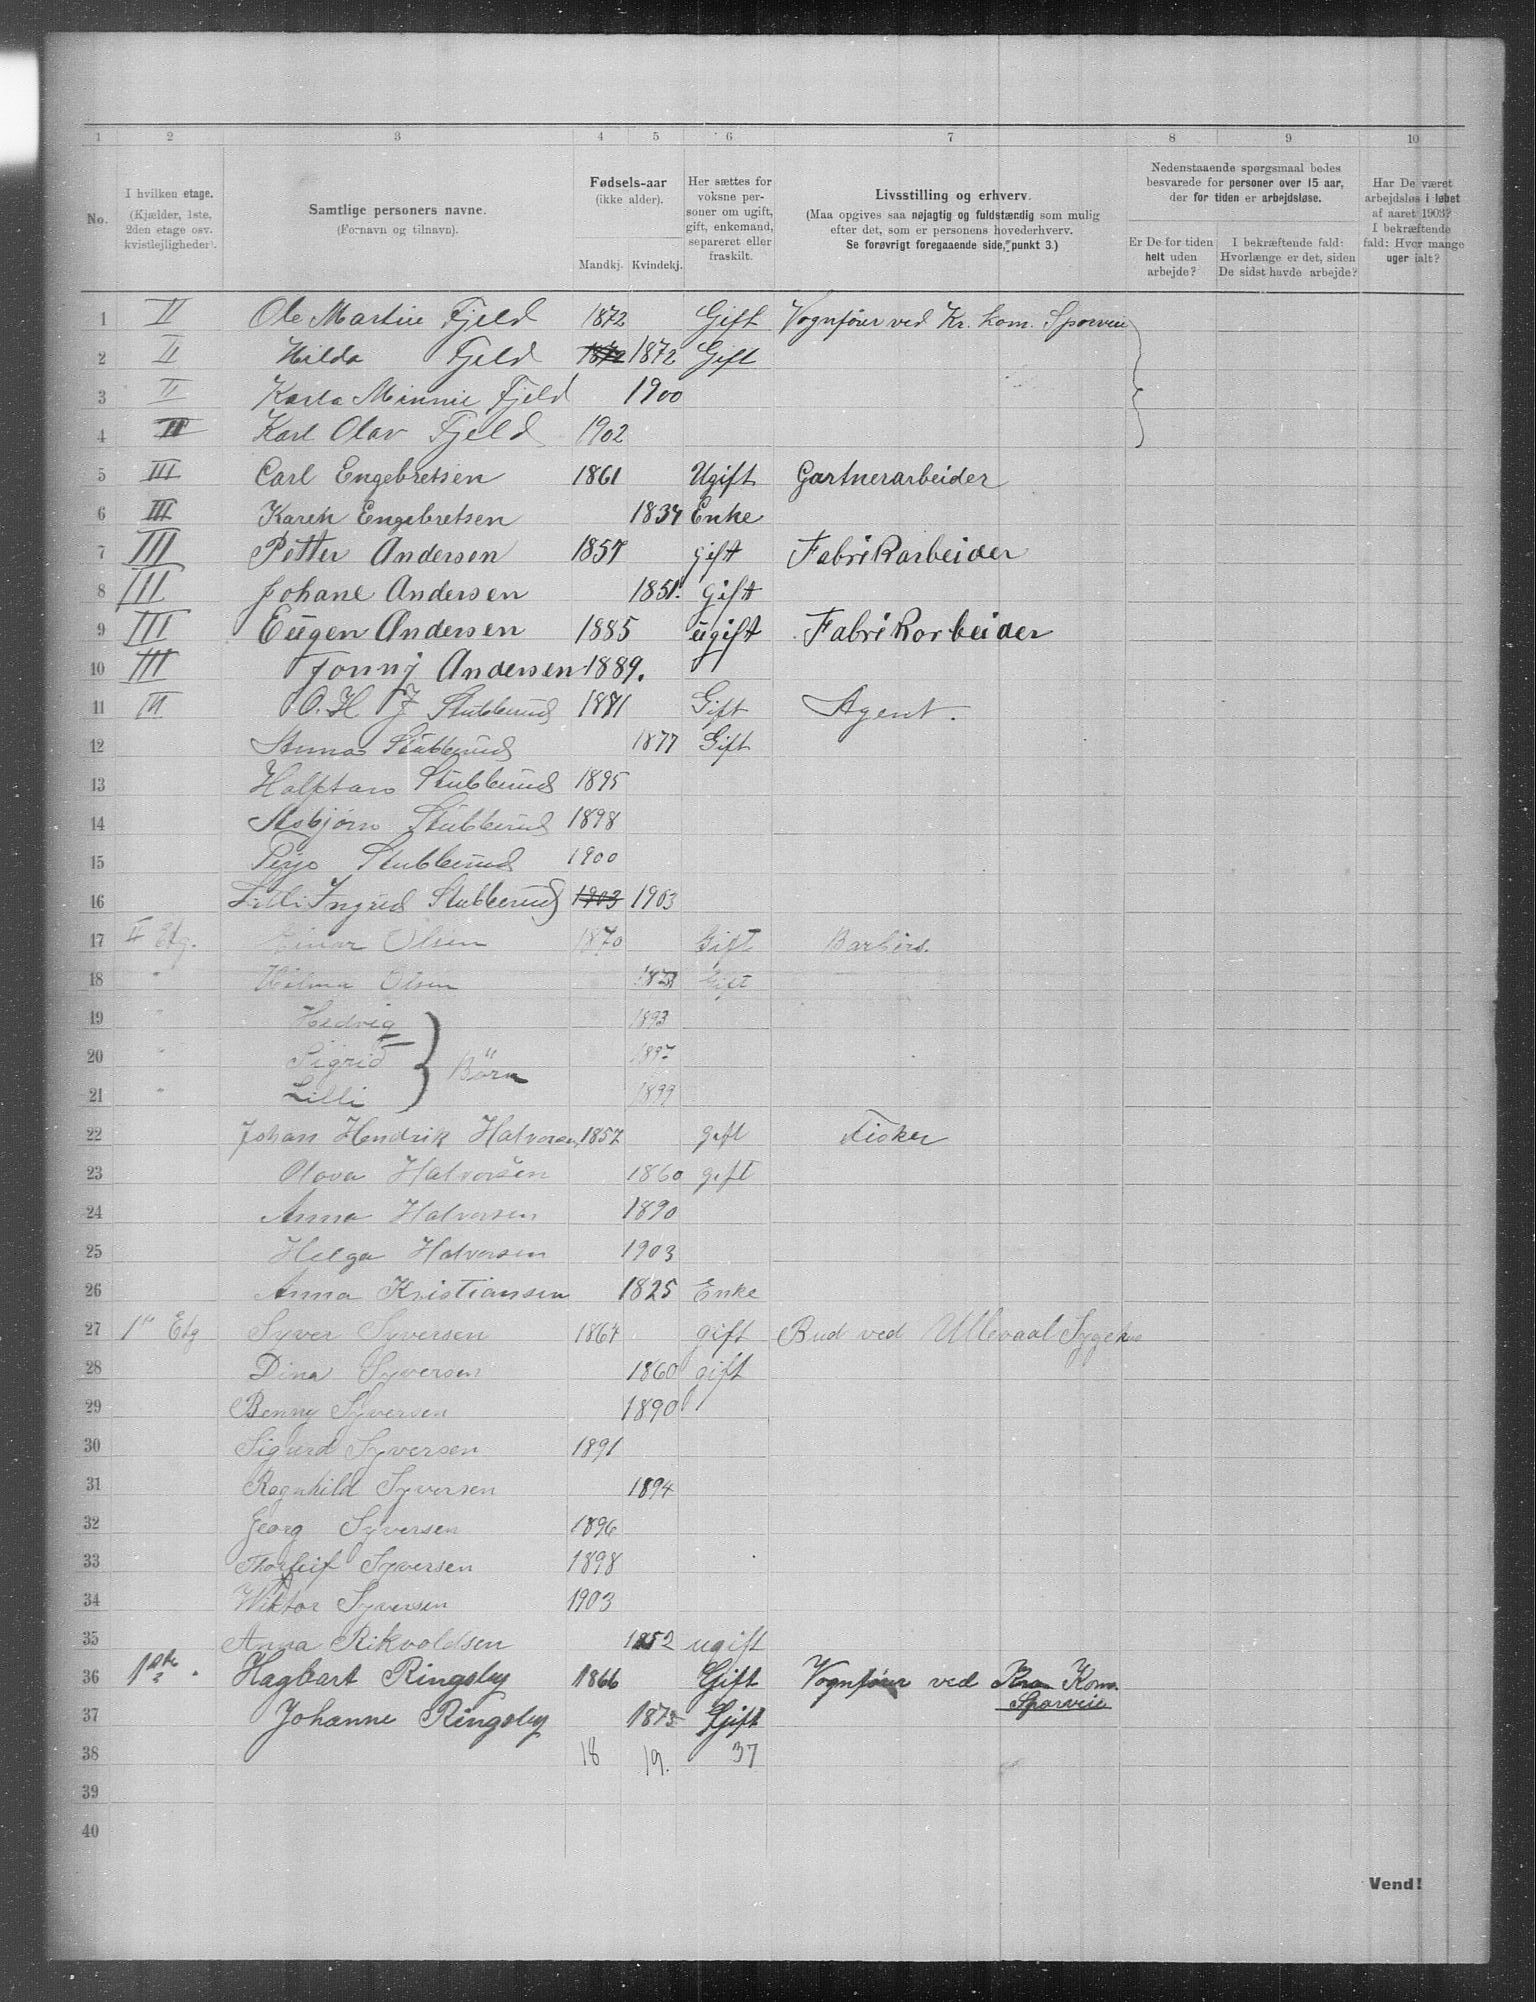 1 2 3 4 5 6 7 8 9 10
No.
I hvilken etage.
(Kjælder, 1ste, 2den etage osv. kvistlejligheder).
Samtlige personers navne.
(Fornavn og tilnavn).
Fødsels-aar
(ikke alder).
Mandkj. Kvindekj.
Her sættes for voksne personer om ugift, gift, enkemand, separeret eller fraskilt.
Livsstilling og erhverv.
(Maa opgives saa nøjagtig og fuldstændig som mulig efter det, som er personens hovederhverv.
Se forøvrigt foregaaende side, punkt 3.)
Nedenstaaende spørgsmaal bedes besvarede for personer over 15 aar, der for tiden er arbejdsløse.
Er De for tiden helt uden arbejde?
I bekræftende fald: Hvorlænge er det, siden De sidst havde arbejde?
Har De været arbejdsløs i løbet af aaret 1903? I bekræftende fald: Hvor mange uger ialt?
1 II Ole Martin Fjeld 1872 Gift Vognfører ved Kr. Kom. Sporveie
2 II Hilda Fjeld 1872 1872 Gift
3 II Karla Minnie Fjeld 1900
4 II Karl Olav Fjeld 1902
5 III Carl Engebretsen 1861 Ugift Gartnerarbeider
6 III Karen Engebretsen 1834 Enke
7 III Petter Andersen 1857 gift Fabrikarbeider
8 III Johane Andersen 1851. gift
9 III Eugen Andersen 1885 ugift Fabrikarbeider
10 III Jonny Andersen 1889.
11 III O. H. J Stubberud 1871 Gift Agent.
12 Anna Stubberud 1877 Gift
13 Halftan Stubberud 1895
14 Asbjørn Stubberud 1898
15 Stubberud 1900
16 Lilli Ingrid Stubberud 1903 1903
17 II Etg. Einar Olsen 1870 Gift Barber.
18 " Hilma Olsen Gift
19 " Hedvig 1893
20 " Sigrid Börn 1897
21 " Lilli 1899
22 Johan Hendrik Halvorsen 1857 gift Fisker
23 Olava Halvorsen 1860 gift
24 Anna Halvorsen 1890
25 Helga Halvorsen 1903
26 Anna Kristiansen 1825 Enke
27 1ste Etg Syver Syversen 1864 gift Bud ved Ullevaal Sygehus
28 Dina Syversen 1860 gift
29 Benny Syversen 1890
30 Sigurd Syversen 1891
31 Ragnhild Syversen 1894
32 Georg Syversen 1896
33 Thorleif Syversen 1898
34 Wiktor Syversen 1903
35 Anna Rikvoldsen 1852 ugift
36 1ste Hagbart Ringsby 1866 Gift Vognfører ved Kra Kom. Sporveie
37 Johanne Ringsby 1875 Gift
38 18 19. 37
39
40
Vend!